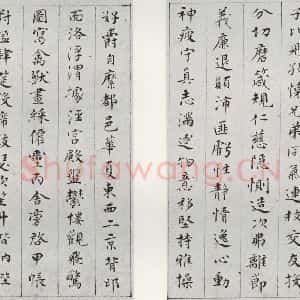 子比兒孔懷兄弟同氣連枝交友投
分切磨箴規仁慈隱惻造次弗離節
義廉退顛沛匪虧性靜情逸心動
神疲守真志滿逐物意移堅持雅操
好爵自縻都邑華夏東西二京背邙
面洛浮渭據涇宮殿盤鬱樓觀飛驚
圖寫禽獸畫綵僊靈丙舍傍啓甲帳
對楹肆筵設席鼓瑟吹笙升階納陛
Shufawang.CN